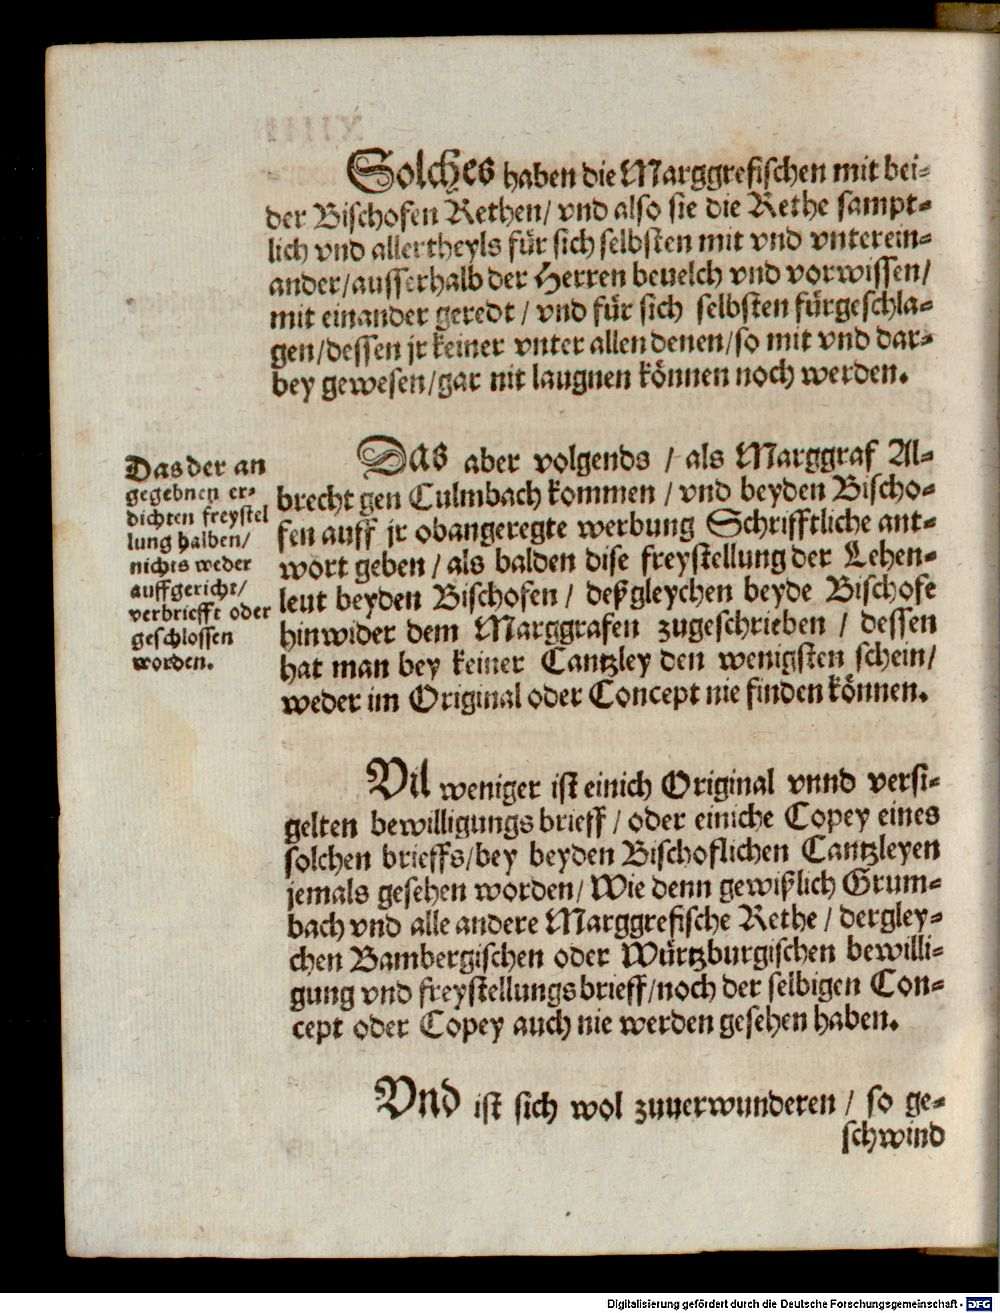 Solches haben die Marggrefischen mit bei-
der Bischofen Rethen/ vnd also sie die Rethe sampt-
lich vnd allertheyls für sich selbsten mit vnd vnterein-
ander/ausserhalb der Herren beuelch vnd vorwissen/
mit einander geredt / vnd für sich selbsten fürgeschla-
gen/dessen jr keiner vnter allen denen/so mit vnd dar-
bey gewesen/gar nit laugnen können noch werden.
Das der an
gegebnen er-
dichten freystel
lung halben/
nichts weder
auffgericht/
verbriefft oder
geschlossen
worden.
Das aber volgends / als Marggraf Al-
brecht gen Culmbach kommen / vnd beyden Bischo-
fen auff jr obangeregte werbung Schrifftliche ant-
wort geben / als balden dise freystellung der Lehen-
leut beyden Bischofen / deßgleychen beyde Bischofe
hinwider dem Marggrafen zugeschrieben / dessen
hat man bey keiner Cantzley den wenigsten schein/
weder im Original oder Concept nie finden können.
Vil weniger ist einich Original vnnd versi-
gelten bewilligungs brieff / oder einiche Copey eines
solchen brieffs/bey beyden Bischoflichen Cantzleyen
jemals gesehen worden/ Wie denn gewißlich Grum-
bach vnd alle andere Marggrefische Rethe / dergley-
chen Bambergischen oder Würtzburgischen bewilli-
gung vnd freystellungs brieff/noch der selbigen Con-
cept oder Copey auch nie werden gesehen haben.
Vnd ist sich wol zuuerwunderen / so ge-
schwind
Digitalisierung gefördert durch die Deutsche Forschungsgemeinschaft - DFG